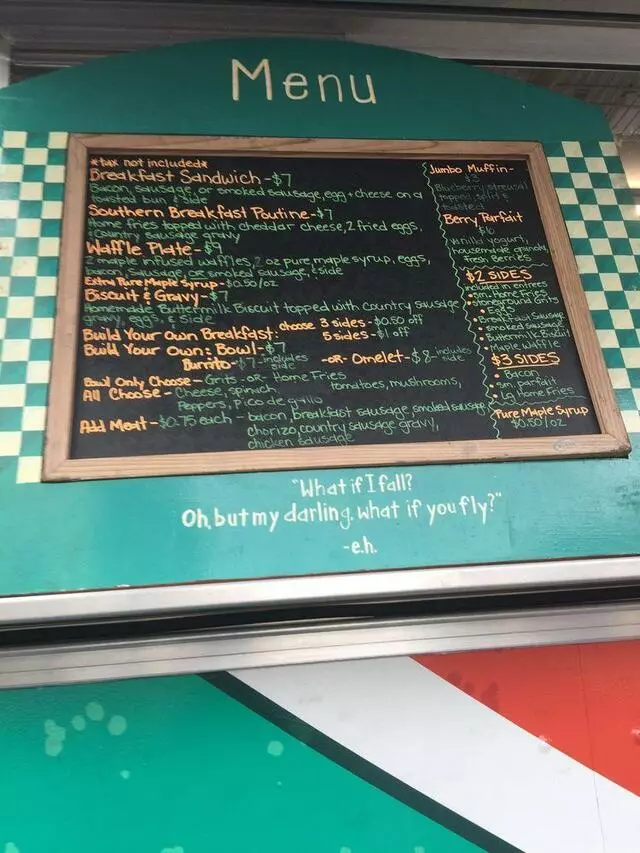 Menu
*tax not included*
Breakfast Sandwich - $7
Bacon, sausage, or smoked sausage, egg + cheese on a
toasted bun & side
Southern Breakfast Poutine - $7
Home fries topped with cheddar cheese, 2 fried eggs,
& country sausage gravy
Waffle Plate - $9
2 maple infused waffles, 2 oz pure maple syrup, eggs,
bacon, sausage, or smoked sausage, & side
Extra Pure Maple Syrup - $0.50/oz
Biscuit & Gravy - $7
Homemade Buttermilk Biscuit topped with country sausage
gravy, eggs, & side
Build Your Own Breakfast: choose 3 sides - $0.50 off
5 sides - $1 off
Build Your Own: Bowl - $7
Burrito - $7 - includes side -OR- Omelet - $8 - includes side
Bowl Only Choose - Grits -or- Home Fries
All Choose - Cheese, spinach, tomatoes, mushrooms,
Peppers, Pico de gallo
Add Meat - $0.75 each - bacon, breakfast sausage, smoked sausage,
chorizo, country sausage gravy,
chicken sausage
Jumbo Muffin -
$3
Blueberry streusel
topped, split &
Berry Parfait
$6
vanilla yogurt,
housemade granola,
fresh berries
$2 SIDES
included in entrees
• sm. Home Fries
• Stoneground Grits
• Eggs
• Breakfast Sausage
• smoked sausage
• Buttermilk Biscuit
• Maple Waffle
$3 SIDES
• Bacon
• sm. parfait
• Lg Home Fries
Pure Maple Syrup
$0.50/oz
"What if I fall?
Oh, but my darling, what if you fly?"
-e.h.